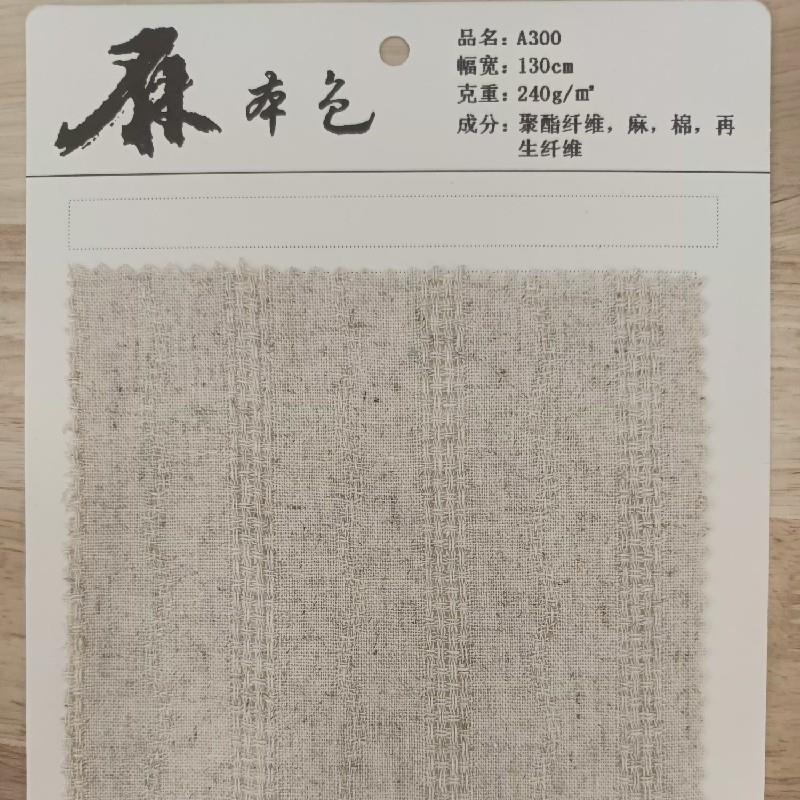 麻本色
品名：A300
幅宽：130cm
克重：240g/㎡
成分：聚酯纤维，麻，棉，再
生纤维